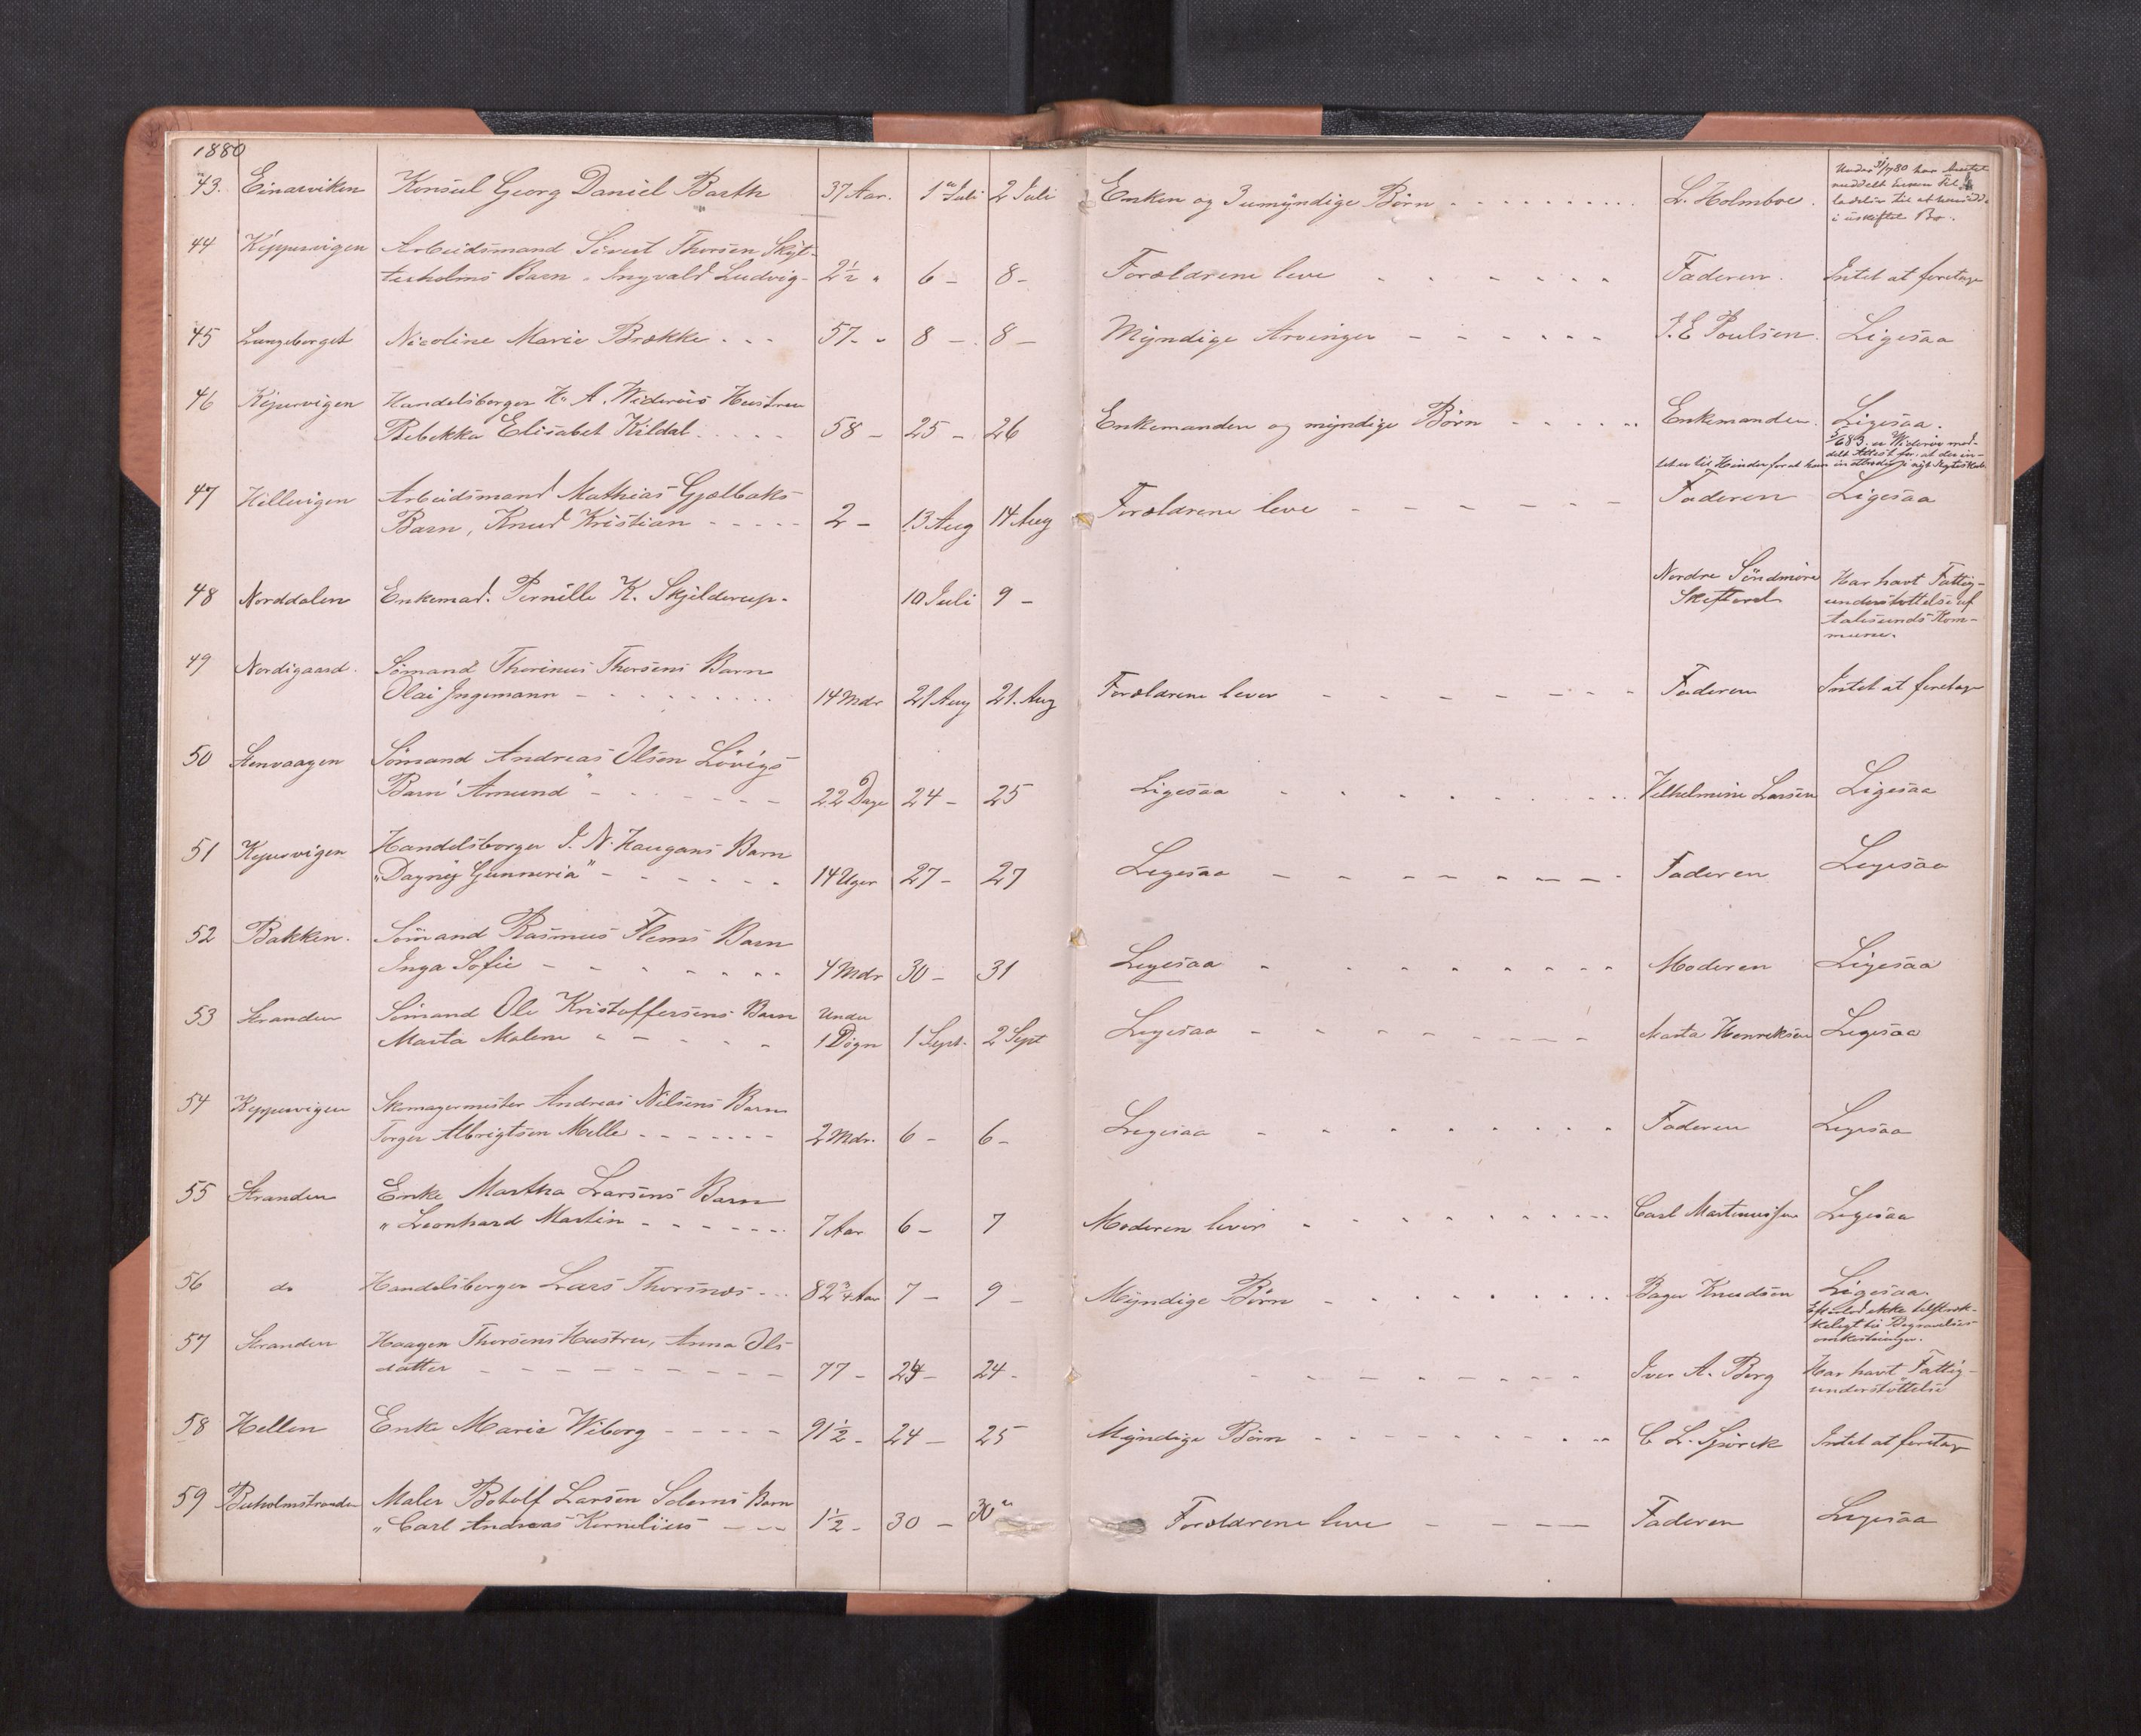 1880
43. Einarviken Konsul Georg Daniel Barth 37 Aar. 1ste Juli 2 Juli Enken og 3 umyndige Børn L. Holmboe. Under 31/7 80 har Amtet
meddelt Enken Til-
ladelse til at hensidde
i uskiftet Bo.
44 Kippervigen Arbeidsmand Sivert Thorsen Skyt-
terholms Barn, Ingvald Ludvig - 2½ " 6 - 8 - Forældrene leve Faderen. Intet at foretage
45 Lungeberget Nicoline Marie Brække 57 - 8 - 8 - Myndige Arvinger J. E Poulsen. Ligesaa
46 Kipervigen Handelsborger H. A. Widerøes Hustru
Bebekka Elisabet Kildal 58 - 25 - 26 Enkemanden og myndige Børn Enkemanden. Ligesaa.
5/6 83. er Widerøe med-
delt Attest for, at der in-
tet er til Hinder for at han indtræder i nyt Ægteskab
47 Hellevigen Arbeidsmand Mathias Gjælbaks
Barn, Knud Kristian 2 - 13 Aug 14 Aug Forældrene leve Faderen Ligesaa
48 Norddalen Enkemad. Pernille K. Skjelderup. 10 Juli 9 - Nordre Söndmöre
Skifteret Har havt Fattig-
understøttelse af
Aalesunds Kom-
mune.
49 Nordigaard. Sömand Thorinus Thorsens Barn
Olai Ingemann 14 Mdr 21 Aug 21. Aug Forældrene lever Faderen Intet at foretage
50 Stenvaagen Sömand Andreas Olsen Lövigs
Barn "Amund" 22 Dage 24 - 25 Ligesaa Vilhelmine Larsen Ligesaa
51 Kipervigen Handelsborger J. N. Haugans Barn
"Dagny Gunneria" 14 Uger 27 - 27 Ligesaa Faderen Ligesaa
52 Bakken. Sömand Rasmus Flems Barn
Inga Sofie 4 Mdr 30 - 31 Ligesaa Moderen Ligesaa
53 Stranden Sömand Ole Kristoffersens Barn Under
Marta Malene 1 Dögn 1 Sept. 2 Sept Ligesaa Marta Henriksen Ligesaa
54 Kippervigen Skomagermester Andreas Nilsens Barn
Torger Albrigtsen Melle 2 Mdr. 6 - 6 - Ligesaa Faderen Ligesaa
55 Stranden Enke Martha Larsens Barn
" Leonhard Martin 7 Aar 6 - 7 Moderen lever Carl Martinussen Ligesaa
56 do Handelsborger Lars Thorsnæs 82¾ Aar 7 - 9 - Myndige Börn Bager Knudsen Ligesaa.
Efterlod ikke tilstræk-
keligt til Begravelses-
omkostninger.
57 Stranden Haagen Thorsens Hustru, Anna Ols-
datter 77 - 24 - 24 - Iver A. Berg Har havt Fattig-
understöttelse
58 Hellen Enke Marie Wiborg 91½ - 24 - 25 Myndige Börn C L. Spörck Intet at foretage
59 Buholmstranden Maler Botolf Larsen Solems Barn
" Carl Andreas Kornelius 1½ - 30 - 30 " Forældrene leve Faderen Ligesaa